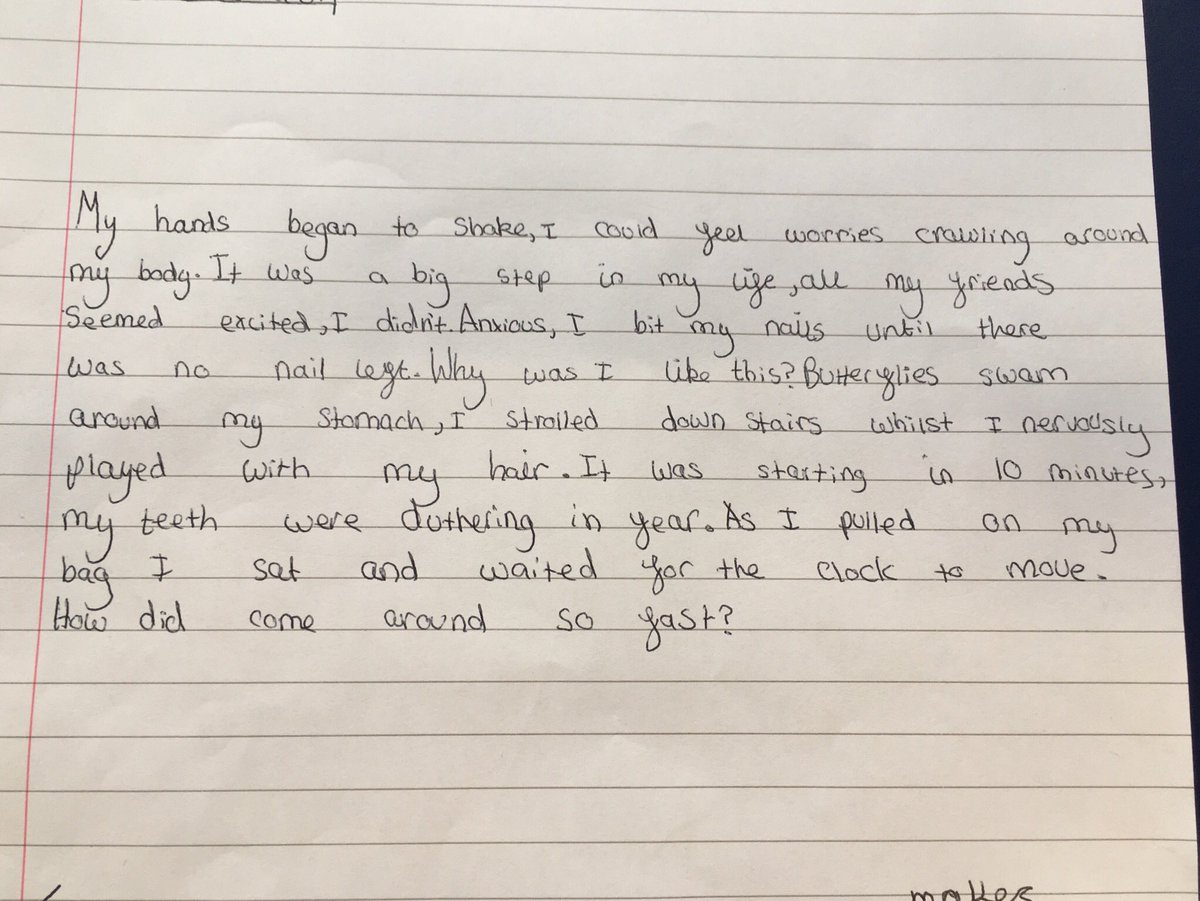 My hands began to shake, I could feel worries crawling around
my body. It was a big step in my life, all my friends
Seemed excited, I didn't. Anxious, I bit my nails until there
was no nail left. Why was I like this? Butterflies swam
around my stomach, I strolled down stairs whilst I nervously
played with my hair. It was starting in 10 minutes,
my teeth were duthering in fear. As I pulled on my
bag I sat and waited for the clock to move.
How did come around so fast?